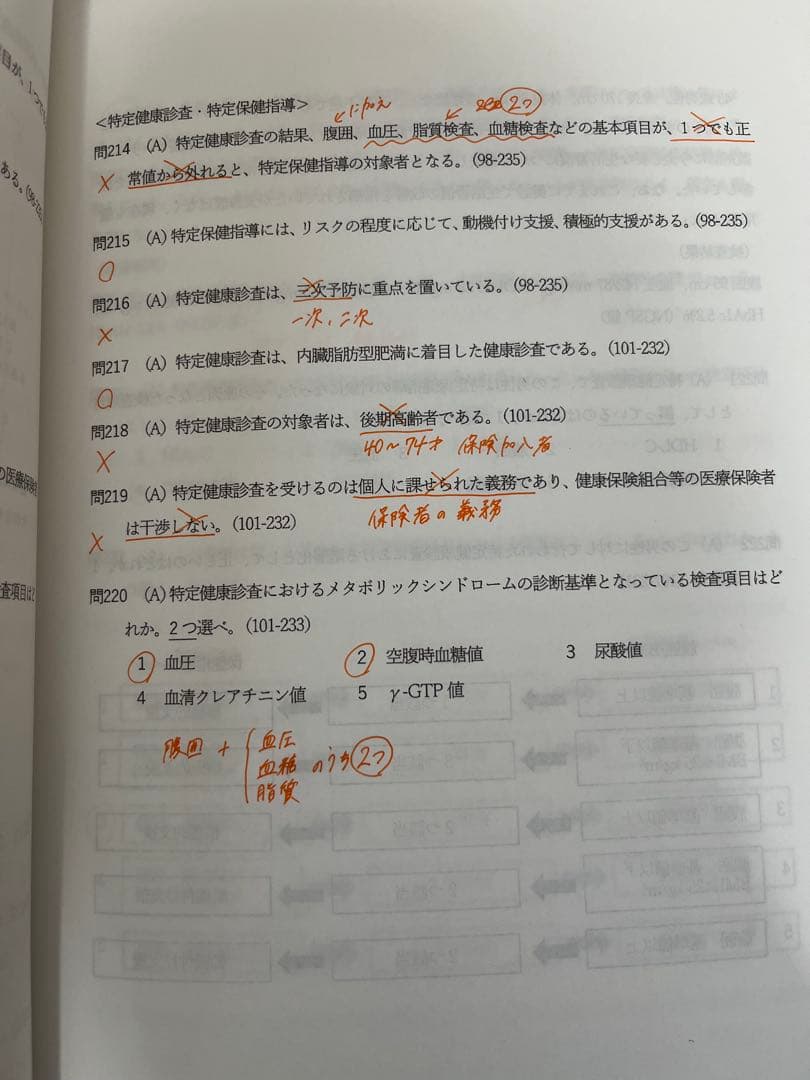 目が、1つでも
ある。(98-235
の医療保険者
査項目はど
<特定健康診査・特定保健指導>
に加え 2つ
問214 (A) 特定健康診査の結果、腹囲、血圧、脂質検査、血糖検査などの基本項目が、1つでも正
× 常値から外れると、特定保健指導の対象者となる。(98-235)
問215 (A) 特定保健指導には、リスクの程度に応じて、動機付け支援、積極的支援がある。(98-235)
○
問216 (A) 特定健康診査は、三次予防に重点を置いている。(98-235)
× 一次、二次
問217 (A) 特定健康診査は、内臓脂肪型肥満に着目した健康診査である。(101-232)
○
問218 (A) 特定健康診査の対象者は、後期高齢者である。(101-232)
× 40~74才 保険加入者
問219 (A) 特定健康診査を受けるのは個人に課せられた義務であり、健康保険組合等の医療保険者
× は干渉しない。(101-232) 保険者の義務
問220 (A) 特定健康診査におけるメタボリックシンドロームの診断基準となっている検査項目はど
れか。2つ選べ。(101-233)
1 血圧 2 空腹時血糖値 3 尿酸値
4 血清クレアチニン値 5 γ-GTP 値
腹囲 + { 血圧
血糖 のうち 2つ
脂質